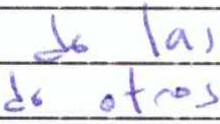 de las
de otros